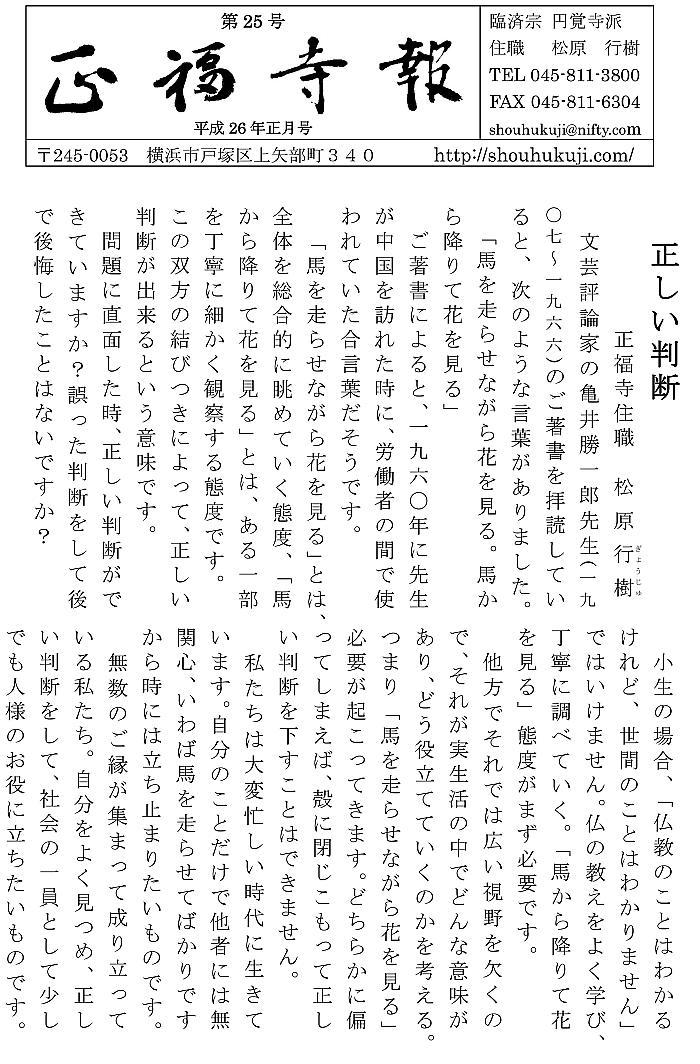 第25号
正福寺報
平成26年正月号
臨済宗 円覚寺派
住職 松原 行樹
TEL 045-811-3800
FAX 045-811-6304
shouhukuji@nifty.com
〒245-0053 横浜市戸塚区上矢部町３４０ http://shouhukuji.com/
正しい判断
正福寺住職 松原行樹
ぎょうじゅ
文芸評論家の亀井勝一郎先生(一九
〇七～一九六六)のご著書を拝読してい
ると、次のような言葉がありました。
「馬を走らせながら花を見る。馬か
ら降りて花を見る」
ご著書によると、一九六〇年に先生
が中国を訪れた時に、労働者の間で使
われていた合言葉だそうです。
「馬を走らせながら花を見る」とは、
全体を総合的に眺めていく態度、「馬
から降りて花を見る」とは、ある一部
を丁寧に細かく観察する態度です。
この双方の結びつきによって、正しい
判断が出来るという意味です。
問題に直面した時、正しい判断がで
きていますか？誤った判断をして後
で後悔したことはないですか？
小生の場合、「仏教のことはわかる
けれど、世間のことはわかりません」
ではいけません。仏の教えをよく学び、
丁寧に調べていく。「馬から降りて花
を見る」態度がまず必要です。
他方でそれでは広い視野を欠くの
で、それが実生活の中でどんな意味が
あり、どう役立てていくのかを考える。
つまり「馬を走らせながら花を見る」
必要が起こってきます。どちらかに偏
ってしまえば、殻に閉じこもって正し
い判断を下すことはできません。
私たちは大変忙しい時代に生きて
います。自分のことだけで他者には無
関心、いわば馬を走らせてばかりです
から時には立ち止まりたいものです。
無数のご縁が集まって成り立って
いる私たち。自分をよく見つめ、正し
い判断をして、社会の一員として少し
でも人様のお役に立ちたいものです。